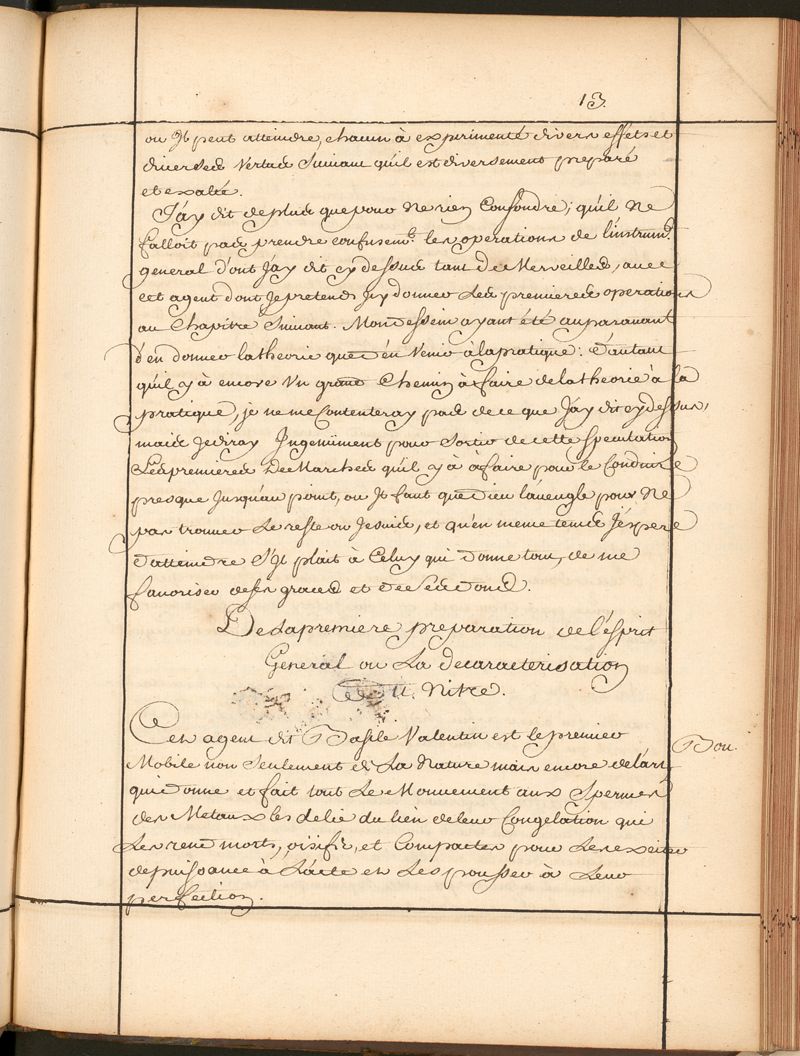 13.
ou Il peut atteindre, chacun à experimenté divers effets et
diverses vertus suivant qu'il est diversement preparé
et exalté.
J'ay dit de plus que pour Ne rien Confondre; qu'il Ne
falloit pas prendre confusem.t les operations de l'instrum.t
general d'ont J'ay dit cy dessus tant de Merveilles, avec
cet agent dont Je pretends Icy donner Les premieres operations
au Chapitre Suivant. Mon dessein ayant été auparavant
d'en donner la theorie que d'en Venir à la pratique: d'autant
qu'il y à encore Un grand Chemin à faire de la theorie à la
pratique, je ne me Contenteray pas de ce que J'ay dit cy dessus,
mais Je diray Ingenüment pour Sortir de cette speculation
Les premieres Demarches qu'il y à à faire pour le Conduire
presque Jusqu'au point, ou Il faut que Dieu l'aveugle pour Ne
pas trouver Le reste ou Je suis, et qu'en meme tems J'espere
d'atteindre S'Il plait à Celuy qui donne tout, de me
favoriser de ses graces et de Ses dons.
De La premiere preparation de l'esprit
General ou La decaracterisation
du Nitre.
Cet agent dit Basile Valentin est le premier
Mobile non Seulement de La Nature mais encore de l'art
qui donne et fait tout Le Mouvement aux Spermes
des Metaux les delie du lien de leur Congelation qui
Les rend morts, oisifs, et Compactes pour Les exciter
de puissance à L'acte et Les pousser à Leur
perfection.
Bon.